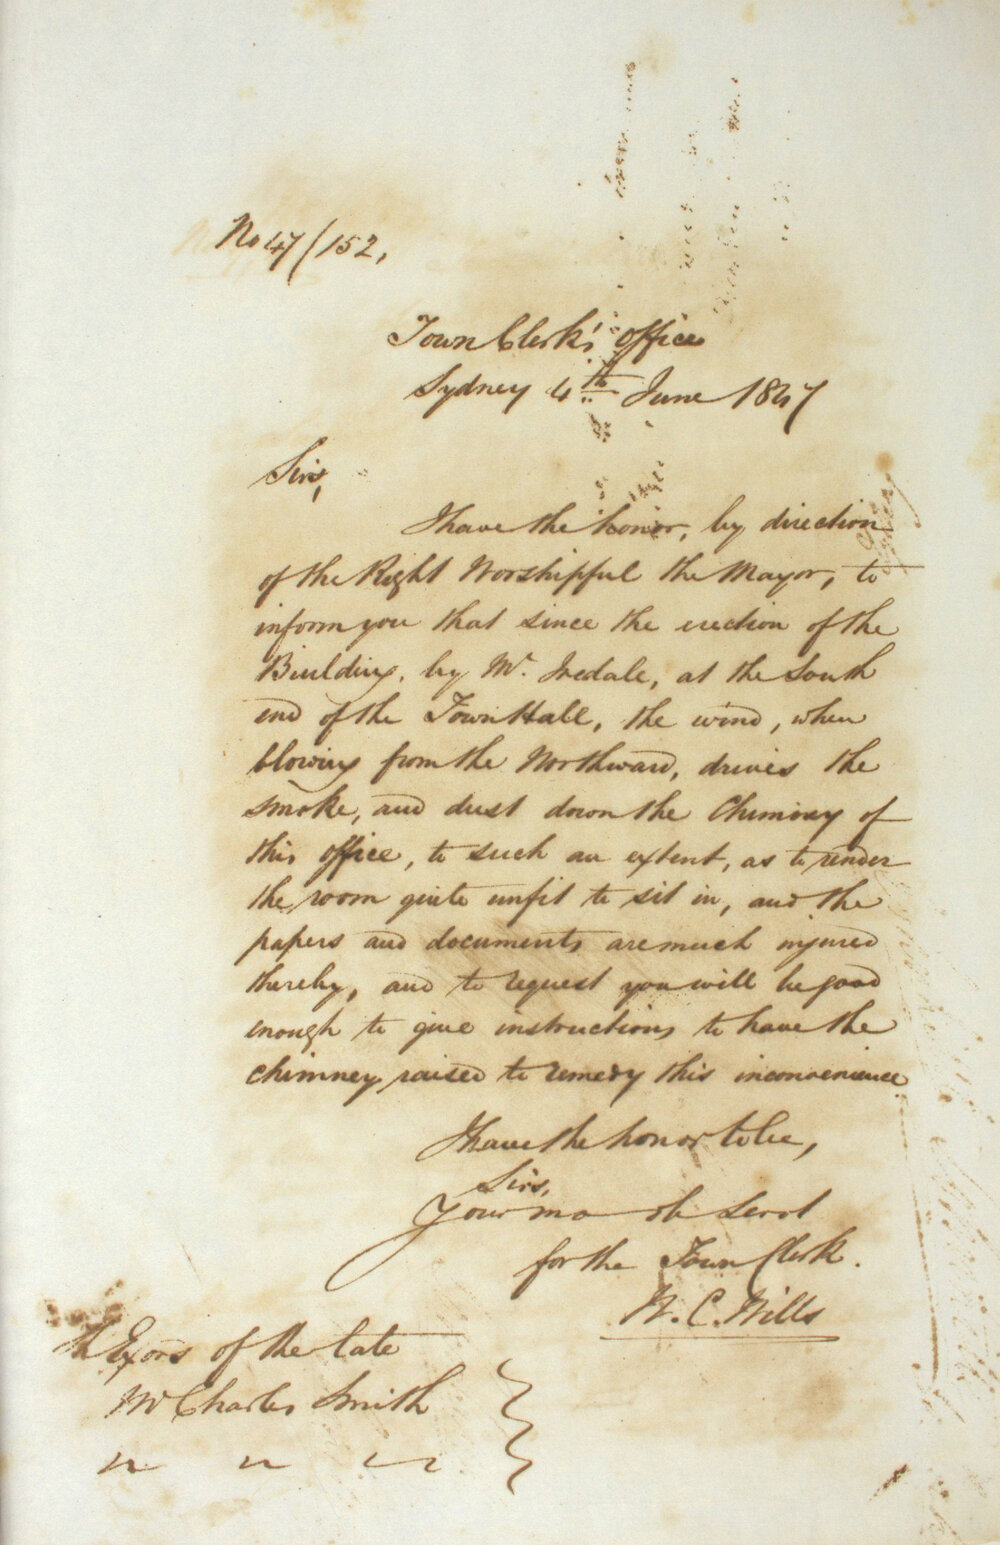 No 47/152,
Town Clerk's Office
Sydney 4th June 1847
Sirs,
I have the honor, by direction
of the Right Worshipful the Mayor, to
inform you that since the erection of the
Building, by Mr. Iredale, at the South
end of the Town Hall, the wind, when
blowing from the Northward, drives the
smoke, and dust down the Chimney of
this office, to such an extent, as to render
the room quite unfit to sit in, and the
papers and documents are much injured
thereby, and to request you will be good
enough to give instructions to have the
chimney raised to remedy this inconvenience
I have the honor to be,
Sirs,
Your mo ob Servt
for the Town Clerk.
W. C. Wills
The Exors of the late
Mr Charles Smith
" " "